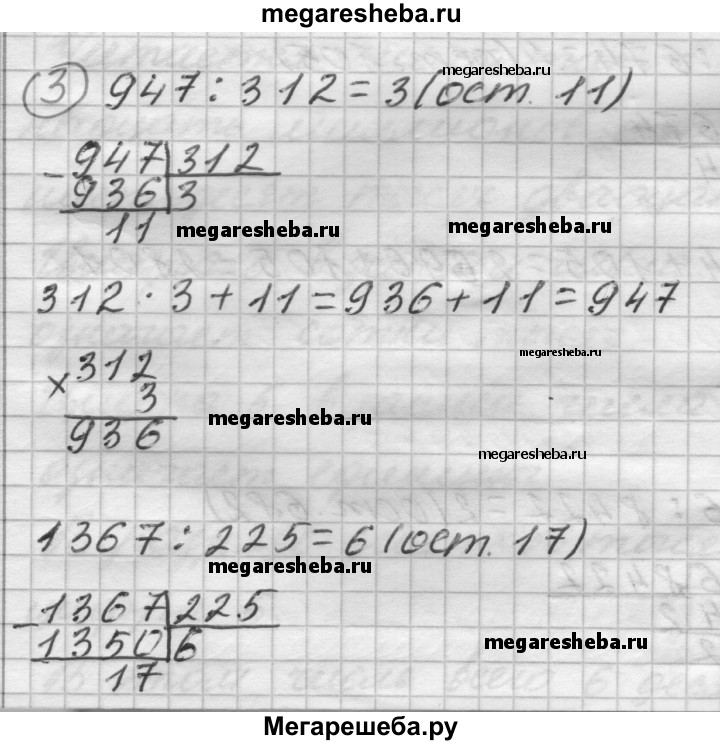 megaresheba.ru
3 947 : 312 = 3 (ост. 11)
megaresheba.ru
- 947 | 312
936 | 3
11
megaresheba.ru
megaresheba.ru
312 · 3 + 11 = 936 + 11 = 947
megaresheba.ru
× 312
3
936
megaresheba.ru
megaresheba.ru
1367 : 225 = 6 (ост. 17)
megaresheba.ru
- 1367 | 225
1350 | 6
17
megaresheba.ru
Мегарешеба.ру